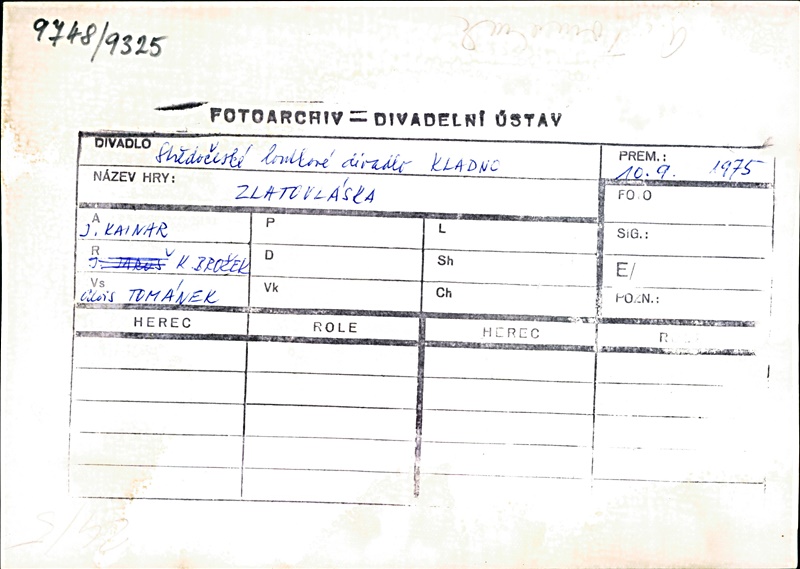 9748/9325
FOTOARCHIV = DIVADELNÍ ÚSTAV
DIVADLO Středočeské loutkové divadlo KLADNO
PREM.: 10. 9. 1975
NÁZEV HRY: ZLATOVLÁSKA
FOTO
A J. KAINAR
P
L
SIG.:
R J. JAROŠ K BROŽEK
D
Sh
E/
Vs Alois TOMÁNEK
Vk
Ch
POZN.:
HEREC ROLE HEREC R